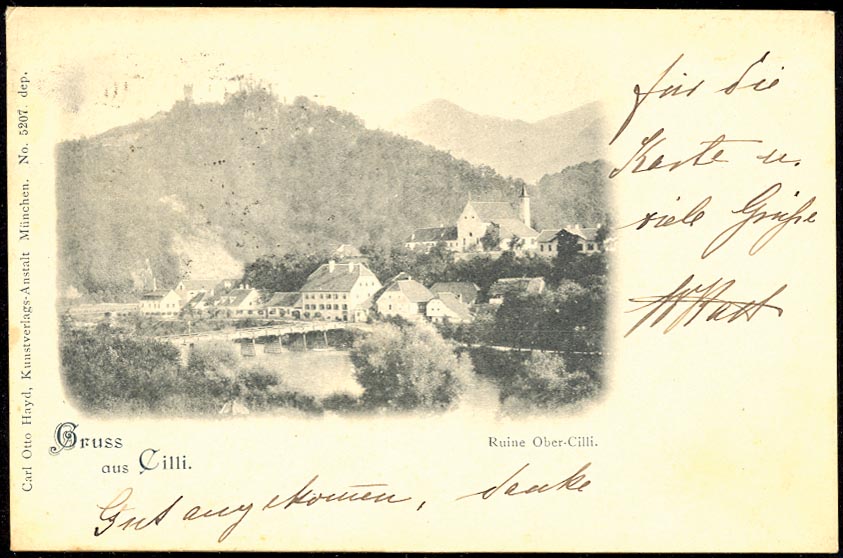 Carl Otto Hayd, Kunstverlags-Anstalt München. No. 5207. dep.
Gruss
aus Cilli.
Ruine Ober-Cilli.
Gut angekommen, danke
für die
Karte u.
viele Grüße